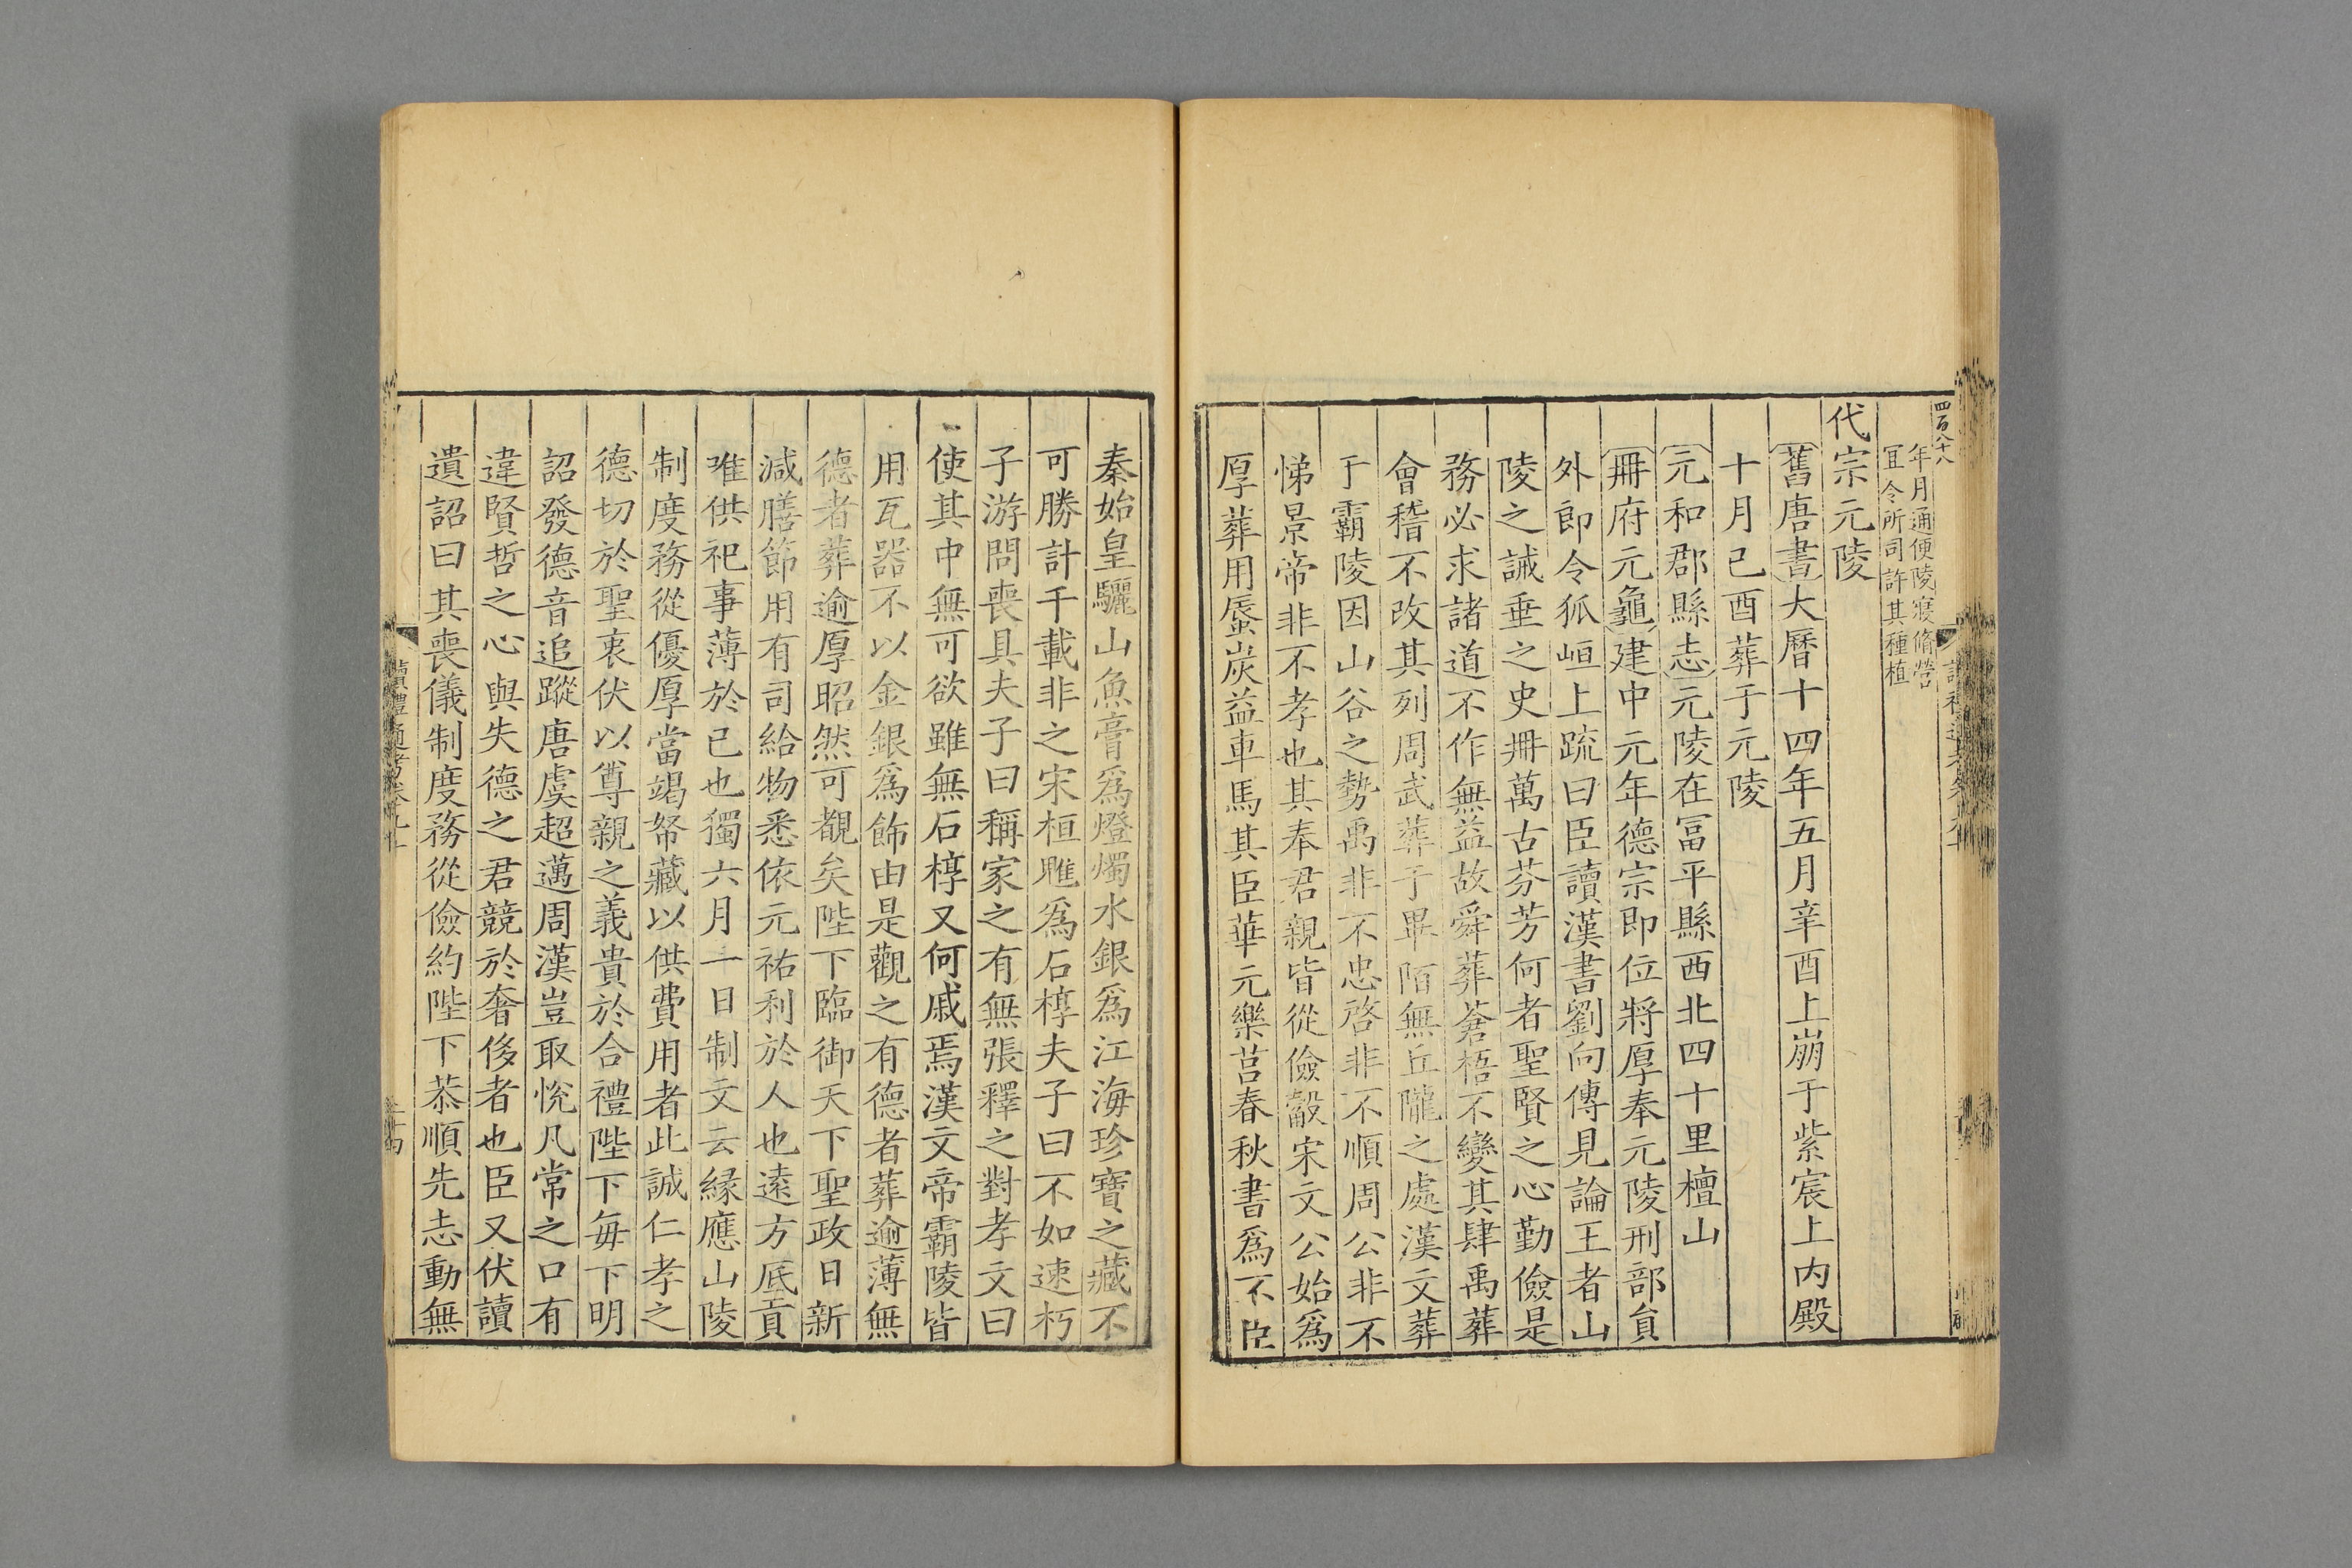 四百八十八
年月通便陵寢脩營
宜令所司許其種植
代宗元陵
舊唐書大曆十四年五月辛酉上崩于紫宸上内殿
十月己酉葬于元陵
元和郡縣志元陵在冨平縣西北四十里檀山
冊府元龜建中元年德宗即位將厚奉元陵刑部貟
外郎令狐峘上疏曰臣讀漢書劉向傳見論王者山
陵之誡垂之史冊萬古芬芳何者聖賢之心勤儉是
務必求諸道不作無益故舜葬蒼梧不變其肆禹葬
會稽不改其列周武葬于畢陌無丘隴之處漢文葬
于霸陵因山谷之勢禹非不忠啓非不順周公非不
悌景帝非不孝也其奉君親皆從儉觳宋文公始爲
厚葬用蜃炭益車馬其臣華元樂莒春秋書爲不臣
秦始皇驪山魚膏爲燈燭水銀爲江海珍寶之藏不
可勝計千載非之宋桓雎爲石椁夫子曰不如速朽
子游問喪具夫子曰稱家之有無張釋之對孝文曰
使其中無可欲雖無石椁又何戚焉漢文帝霸陵皆
用瓦器不以金銀爲飾由是觀之有德者葬逾薄無
德者葬逾厚昭然可覩矣陛下臨御天下聖政日新
減膳節用有司給物悉依元祐利於人也遠方底貢
唯供祀事薄於己也獨六月一日制文云緣應山陵
制度務從優厚當竭帑藏以供費用者此誠仁孝之
德切於聖衷伏以尊親之義貴於合禮陛下每下明
詔發德音追蹤唐虞超邁周漢豈取悅凡常之口有
違賢哲之心與失德之君競於奢侈者也臣又伏讀
遺詔曰其喪儀制度務從儉約陛下恭順先志動無
讀禮通考卷九十